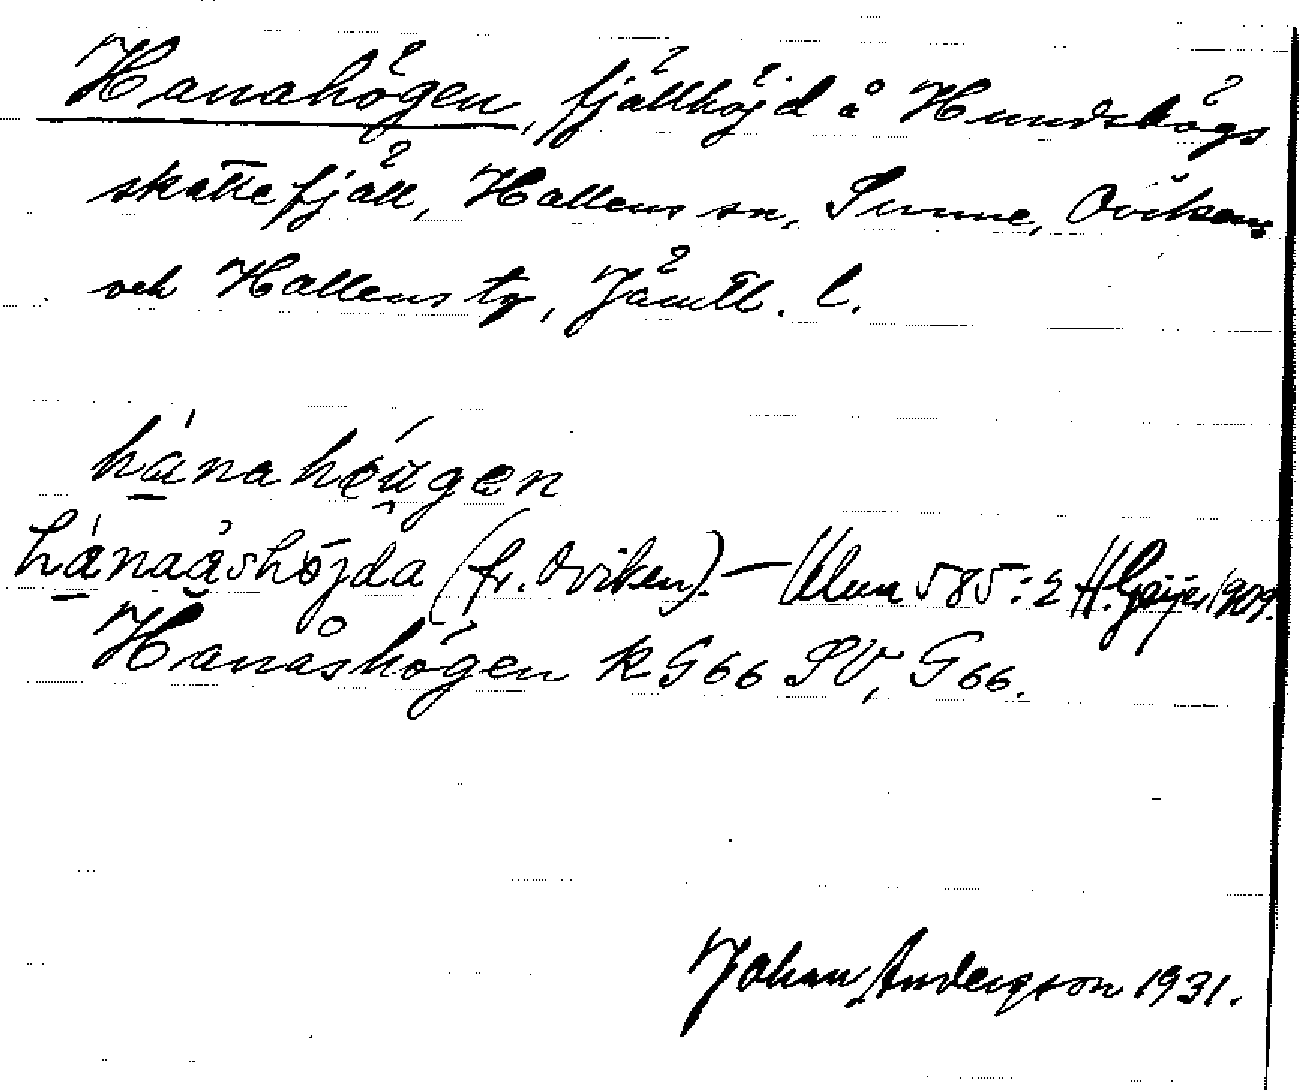 Hanahögen, fjällhöjd å Hundshögs
skattefjäll, Hallens sn, Sunne, Ovikens
och Hallens tg, Jämtl. l.
hánahéugen
hánaåshöjda (fr. Oviken). — Ulma 585:2 H. Geijer 1909.
Hanåshögen k G66 SV, G66.
Johan Andersson 1931.